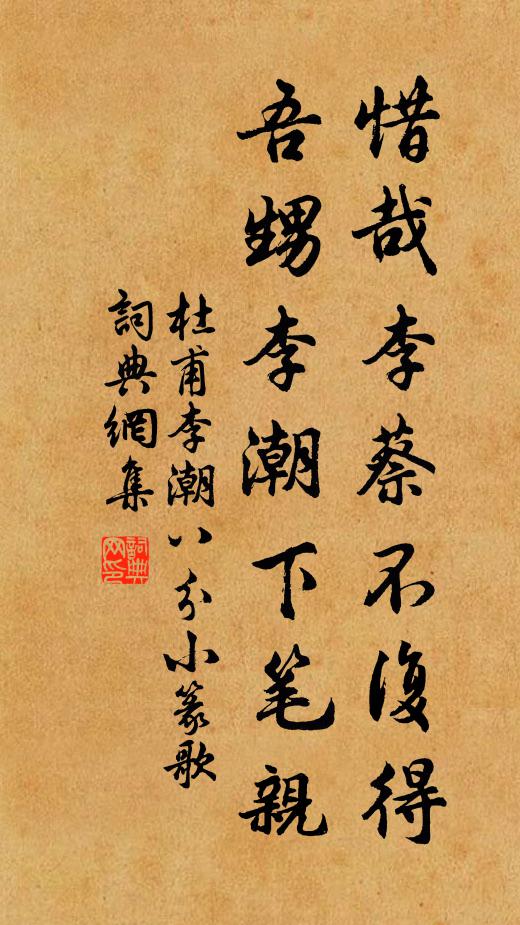 惜哉李蔡不復得
吾甥李潮下笔親
杜甫李潮八分小篆歌
詞典網集
詞典网印